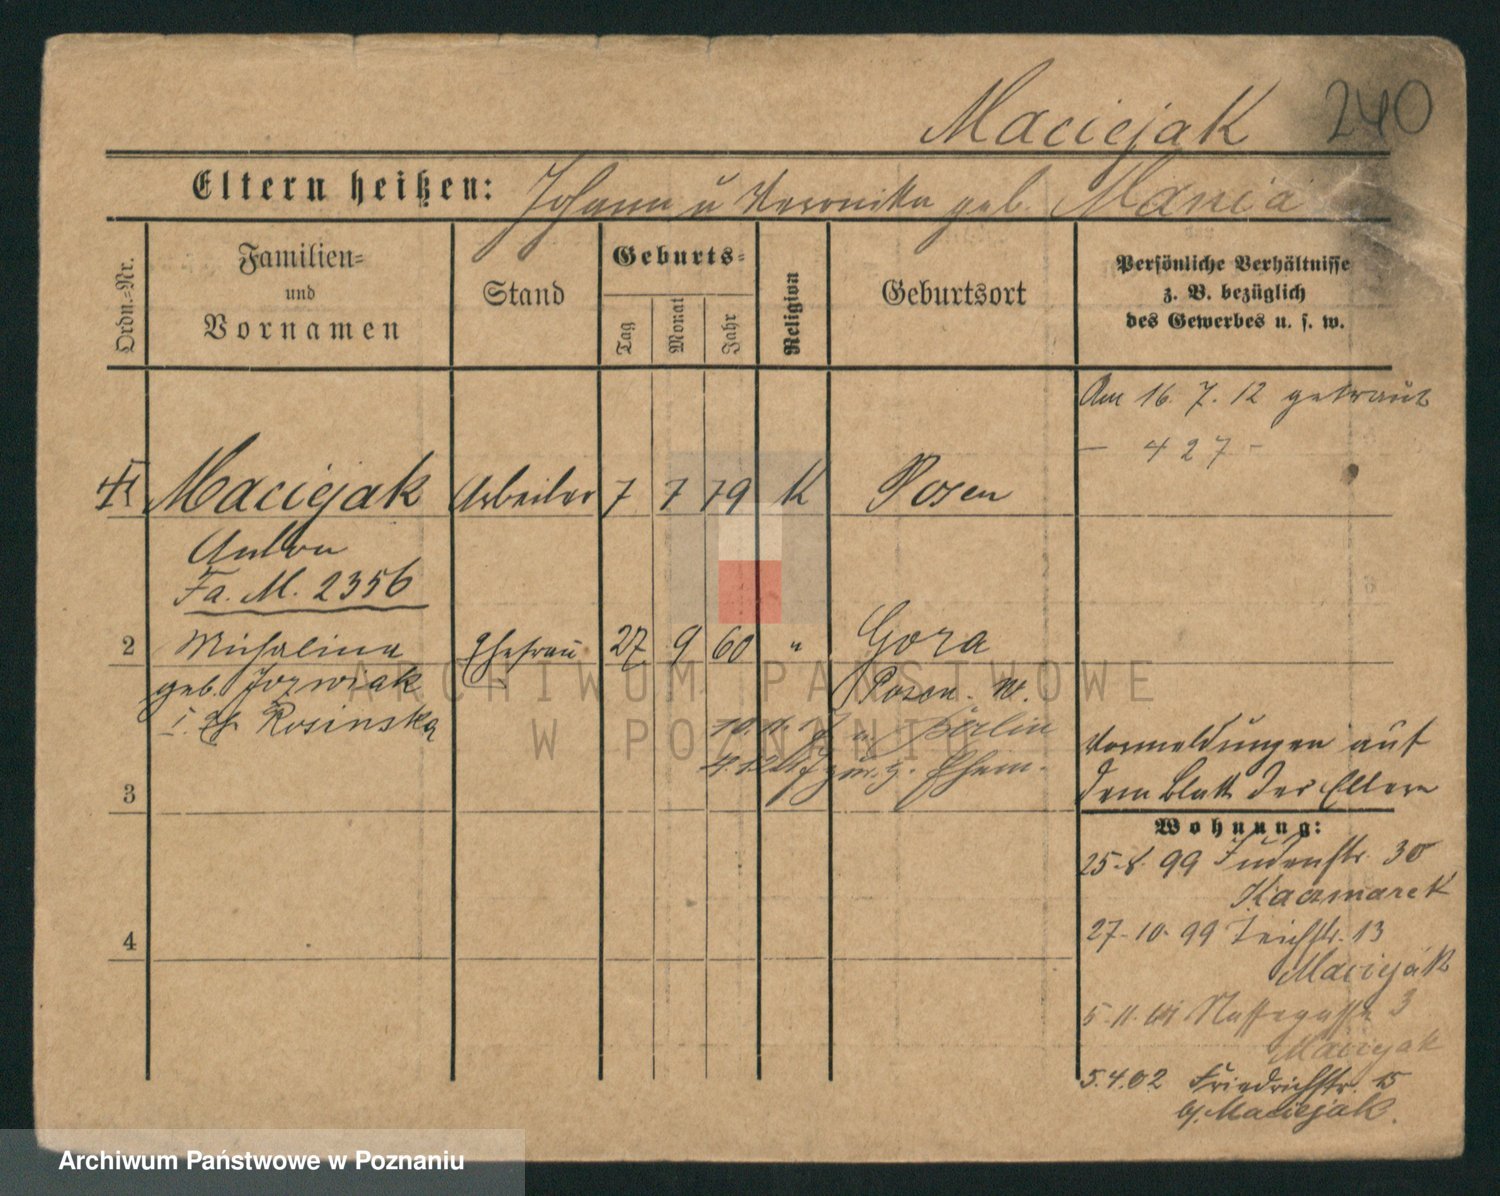 Maciejak 240
Eltern heißen: Johann u Veronika geb. Mania
Ordn.-Nr.
Familien-
und
Vornamen
Stand
Geburts-
Tag
Monat
Jahr
Religion
Geburtsort
Persönliche Verhältnisse
z. B. bezüglich
des Gewerbes u. s. w.
Am 16. 7. 12 getraut
- 427 -
Maciejak Arbeiter 7 7 79 K Posen
Anton
Fa. M. 2356
2 Michalina Ehefrau 27 9 60 " Gora
geb. Jozwiak Posen. W.
Rosinska
Berlin
3
Vormeldungen auf
dem Blatt der Eltern
Wohnung:
25.8.99 Judenstr. 30
Kaczmarek
4
27.10.99 Teichstr. 13
Maciejak
5.11.01 Nassegasse 3
Maciejak
5.4.02 Friedrichstr. 15
b/. Maciejak.
ARCHIWUM PAŃSTWOWE
W POZNANIU
Archiwum Państwowe w Poznaniu